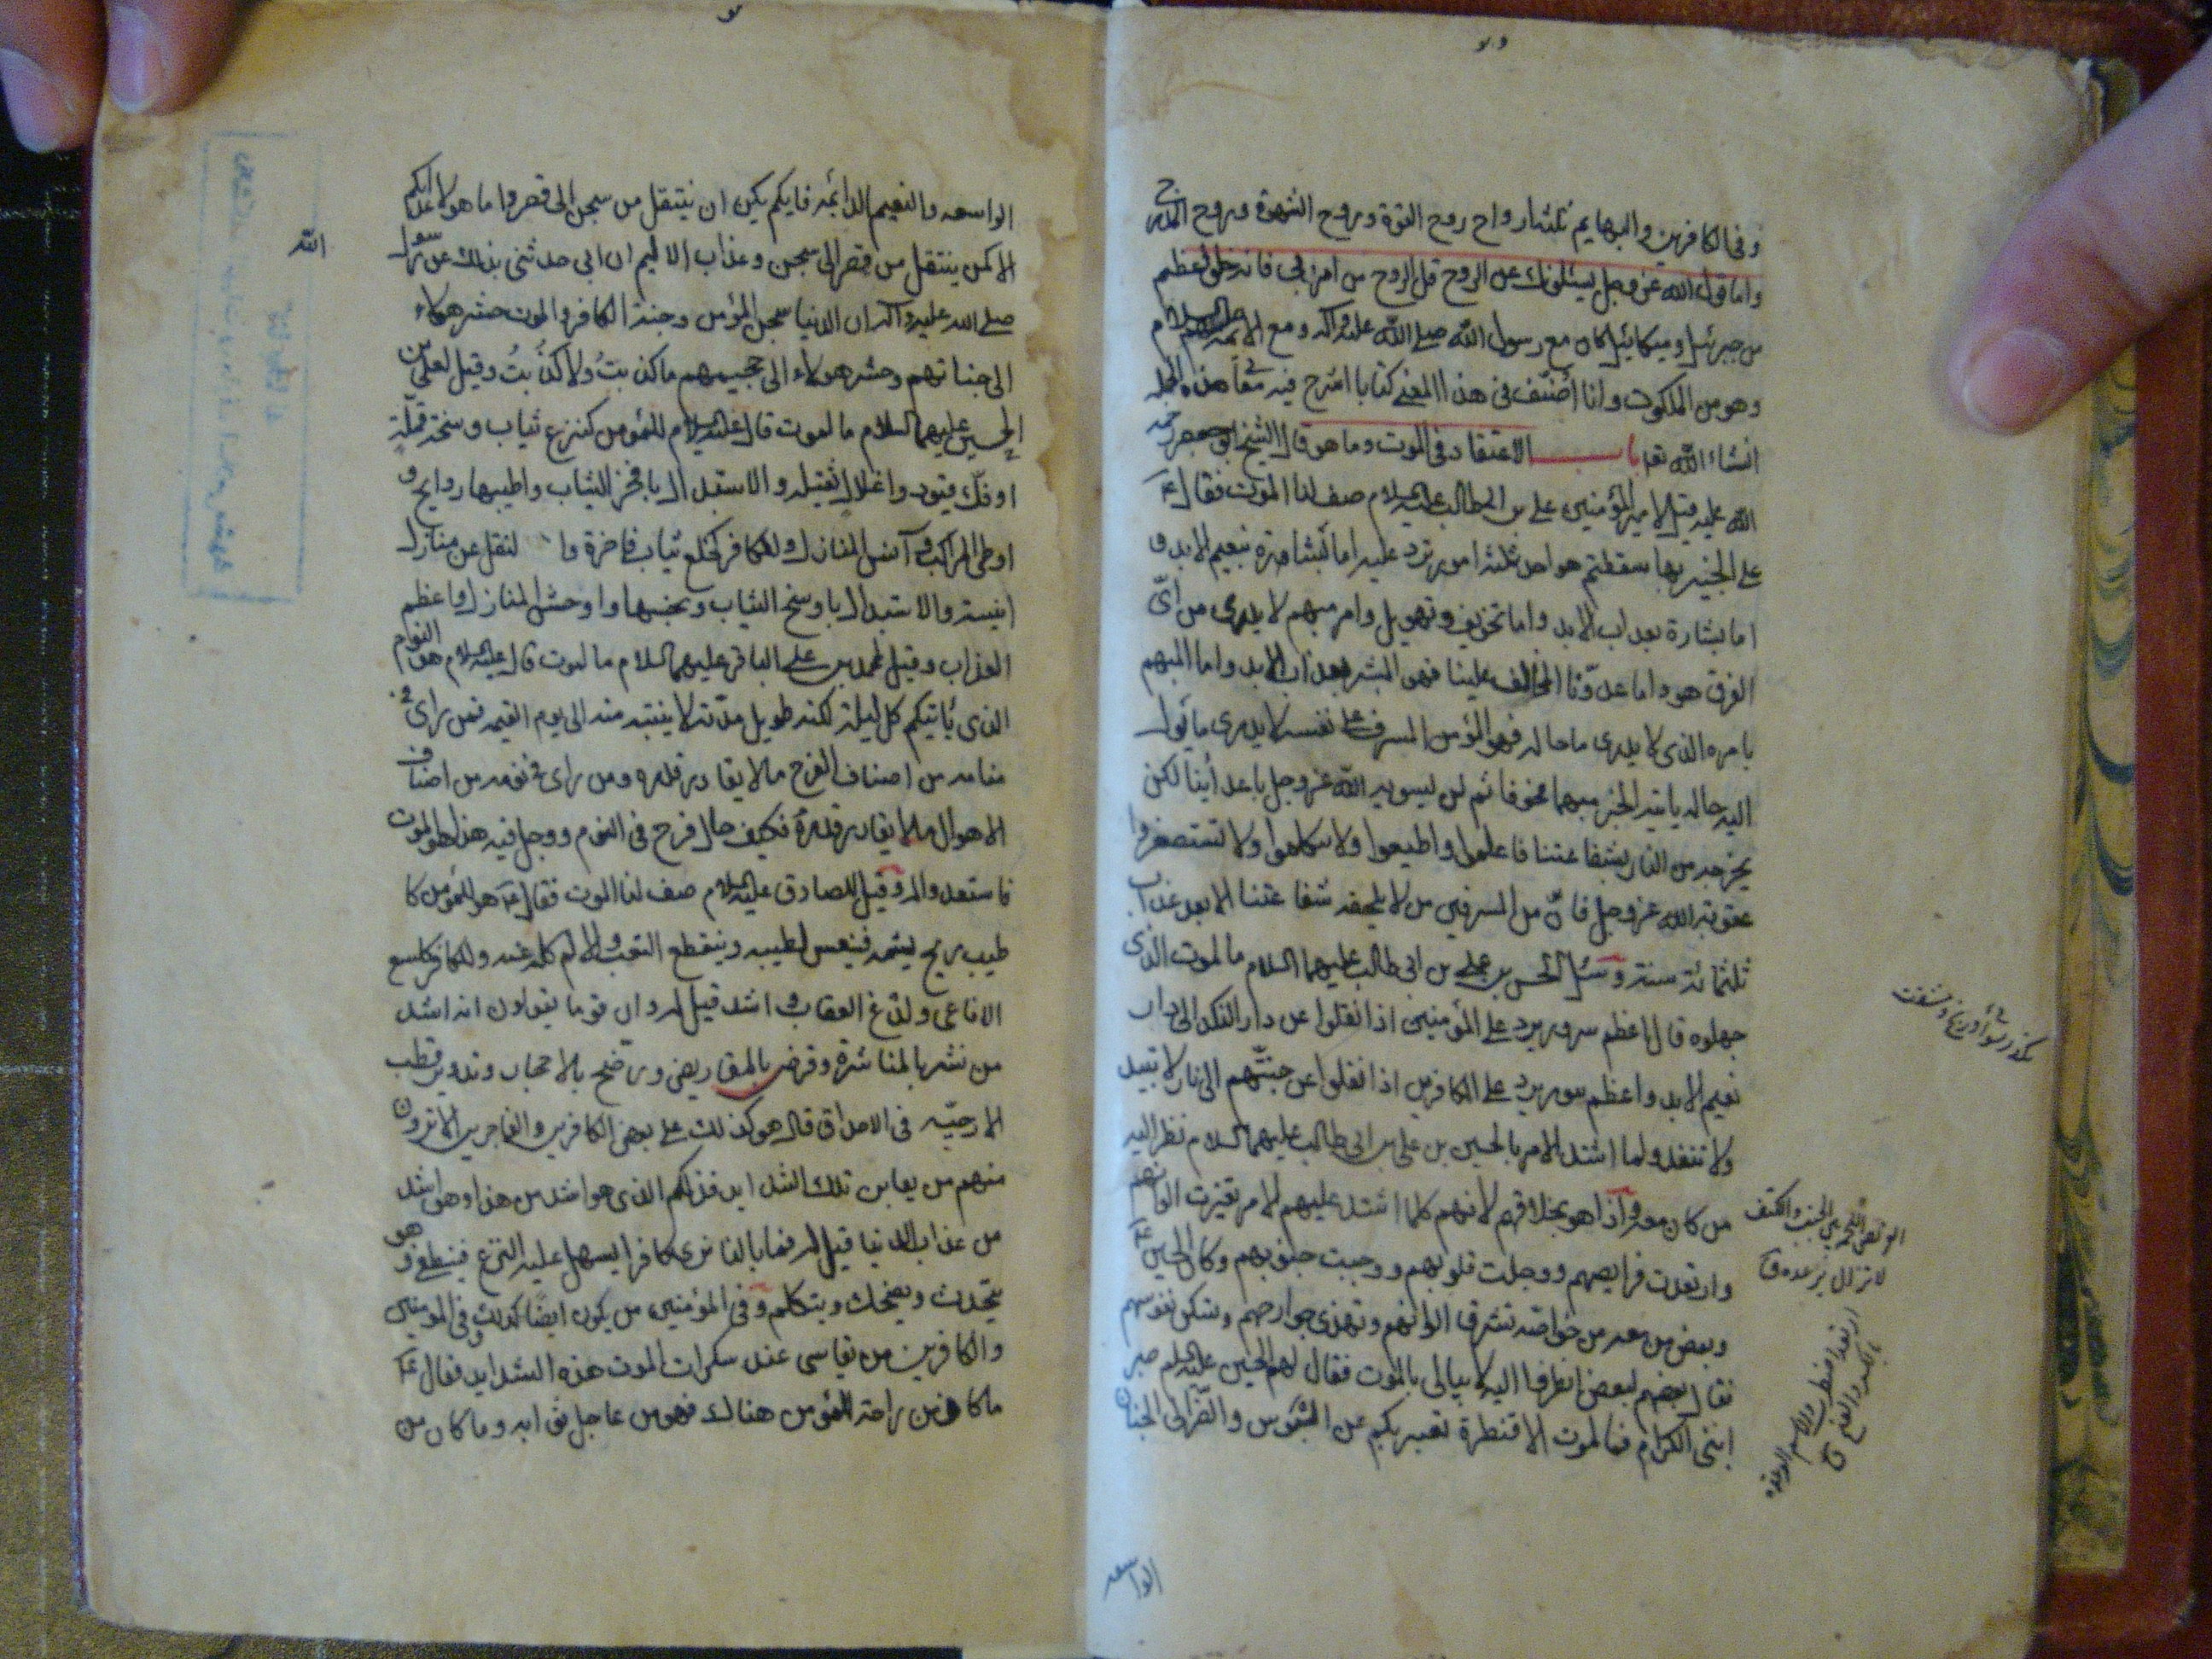 وفى الكافرين والبهايم ثلثه ارواح روح القوة وروح الشهوة وروح المدرج
واما قول الله عز وجل يسئلونك عن الروح قل الروح من امر ربى فانه خلق اعظم
من جبرئيل وميكائيل كان مع رسول الله صلى الله عليه وآله ومع الائمة عليهم السلام
وهو من الملكوت وانا اصنف فى هذا المعنى كتابا اشرح فيه معانى هذه الجمل
انشاء الله تعا باب الاعتقاد فى الموت وما هو قال الشيخ ابو جعفر رحمه
الله عليه قيل لامير المؤمنين على بن ابيطالب عليه السلام صف لنا الموت فقال ع
على الخبير بها سقطتم هو احد ثلثه امور ترد عليه اما بشارة بنعيم الابد و
اما بشارة بعذاب الابد واما تخويف وتهويل وامر مبهم لا يدرى من اىّ
الفرق هو واما عدوّنا المخالف علينا فهو المبشر بعذاب الابد واما المبهم
بامره الذى لا يدرى ما حاله فهو المؤمن المسرف على نفسه لا يدرى ما يؤل
اليه حاله ياتيه الخبر مبهما مخوفا ثم لن يسويه الله عز وجل باعدائنا لكن
يخرجه من النار بشفاعتنا فاعلموا واطيعوا ولا تتكلوا ولا تستصغروا
عقوبة الله عز وجل فانّ من المسرفين من لا يلحقه شفاعتنا الا بعد عذاب
ثلثمائة سنة وسئل الحسن بن على بن ابى طالب عليهما السلام ما الموت الذى
جهلوه قال اعظم سرور يرد على المؤمنين اذا نقلوا عن دار النكد الى دار
نعيم الابد واعظم ثبور يرد على الكافرين اذا نقلوا عن جنتهم الى نار لا تبيد
ولا تنفد ولما اشتد الامر بالحسين بن على بن ابى طالب عليهما السلام نظر اليه
من كان معه واذا هو بخلافهم لانهم كلما اشتد عليهم الامر تغيرت الوانهم
وارتعدت فرايصهم ووجلت قلوبهم ووجبت جنوبهم وكان الحسين ع
وبعض من معه من خواصه تشرق الوانهم وتهدى جوارحهم وتسكن نفوسهم
فقال بعضهم لبعض انظروا اليه لا يبالى بالموت فقال لهم الحسين عليه السلم صبر
ابنى الكرام فما الموت الا قنطرة تعبر بكم عن البؤس والضر الى الجنان
الواسعه
الواسعه والنعيم الدائمه فايكم يكره ان ينتقل من سجن الى قصر واما هولاء اعدائكم
الا كمن ينتقل من قصر الى سجن وعذاب الاليم ان ابى حدثنى بذلك عن رسول
الله
صلى الله عليه وآله ان الدنيا سجن المؤمن وجنة الكافر والموت جسر هولاء
الى جناتهم وجسر هولاء الى جحيمهم ما كذبت ولا كذبت وقيل لعلى بن
الحسين عليهما السلام ما الموت قال عليه السلام للمؤمن كنزع ثياب وسخة قملة
او فك قيود واغلال ثقيله والاستبدال بافخر الثياب واطيبها روايح و
اوطى المراكب وآنس المنازل وللكافر كخلع ثياب فاخرة وا لنقل عن منازل
انيسة والاستبدال باوسخ الثياب وبخشنها واوحش المنازل واعظم
العذاب وقيل لمحمد بن على الباقر عليهما السلام ما الموت قال عليه السلام هو النوم
الذى ياتيكم كل ليلة لكنه طويل مدته لا ينتبه منه الى يوم القيمه فمن راى فى
منامه من اصناف الفرح ما لا يقادر قدره ومن راى فى نومه من اصناف
الاهوال ما لا يقادر قدره فكيف حال فرح فى النوم ووجل فيه هذا هو الموت
فاستعدوا له وقيل للصادق عليه السلام صف لنا الموت فقال ع هو للمؤمن كا
طيب ريح يشمه فينعس لطيبه وينقطع التعب والالم كله عنه وللكافر كلسع
الافاعى ولدغ العقارب واشد قيل له وان قوما يقولون انه اشد
من نشر بالمناشرة وقرض بالمقاريض ورضخ بالاحجار وتدوير قطب
الارحيّه فى الاحداق قال هو كذلك على بعض الكافرين والفاجرين الا ترون
منهم من يعاين تلك الشدايد فذلكم الذى هو اشد من هذا وهو اشد
من عذاب الدنيا قيل له فما بالنا نرى كافرا يسهل عليه النزع فينطفى وهو
يتحدث ويضحك ويتكلم وفى المؤمنين من يكون ايضا كذلك وفى المؤمنين
والكافرين من يقاسى عند سكرات الموت هذه الشدايد فقال ع
ما كان من راحة للمؤمن هناك فهو من عاجل ثوابه وما كان من